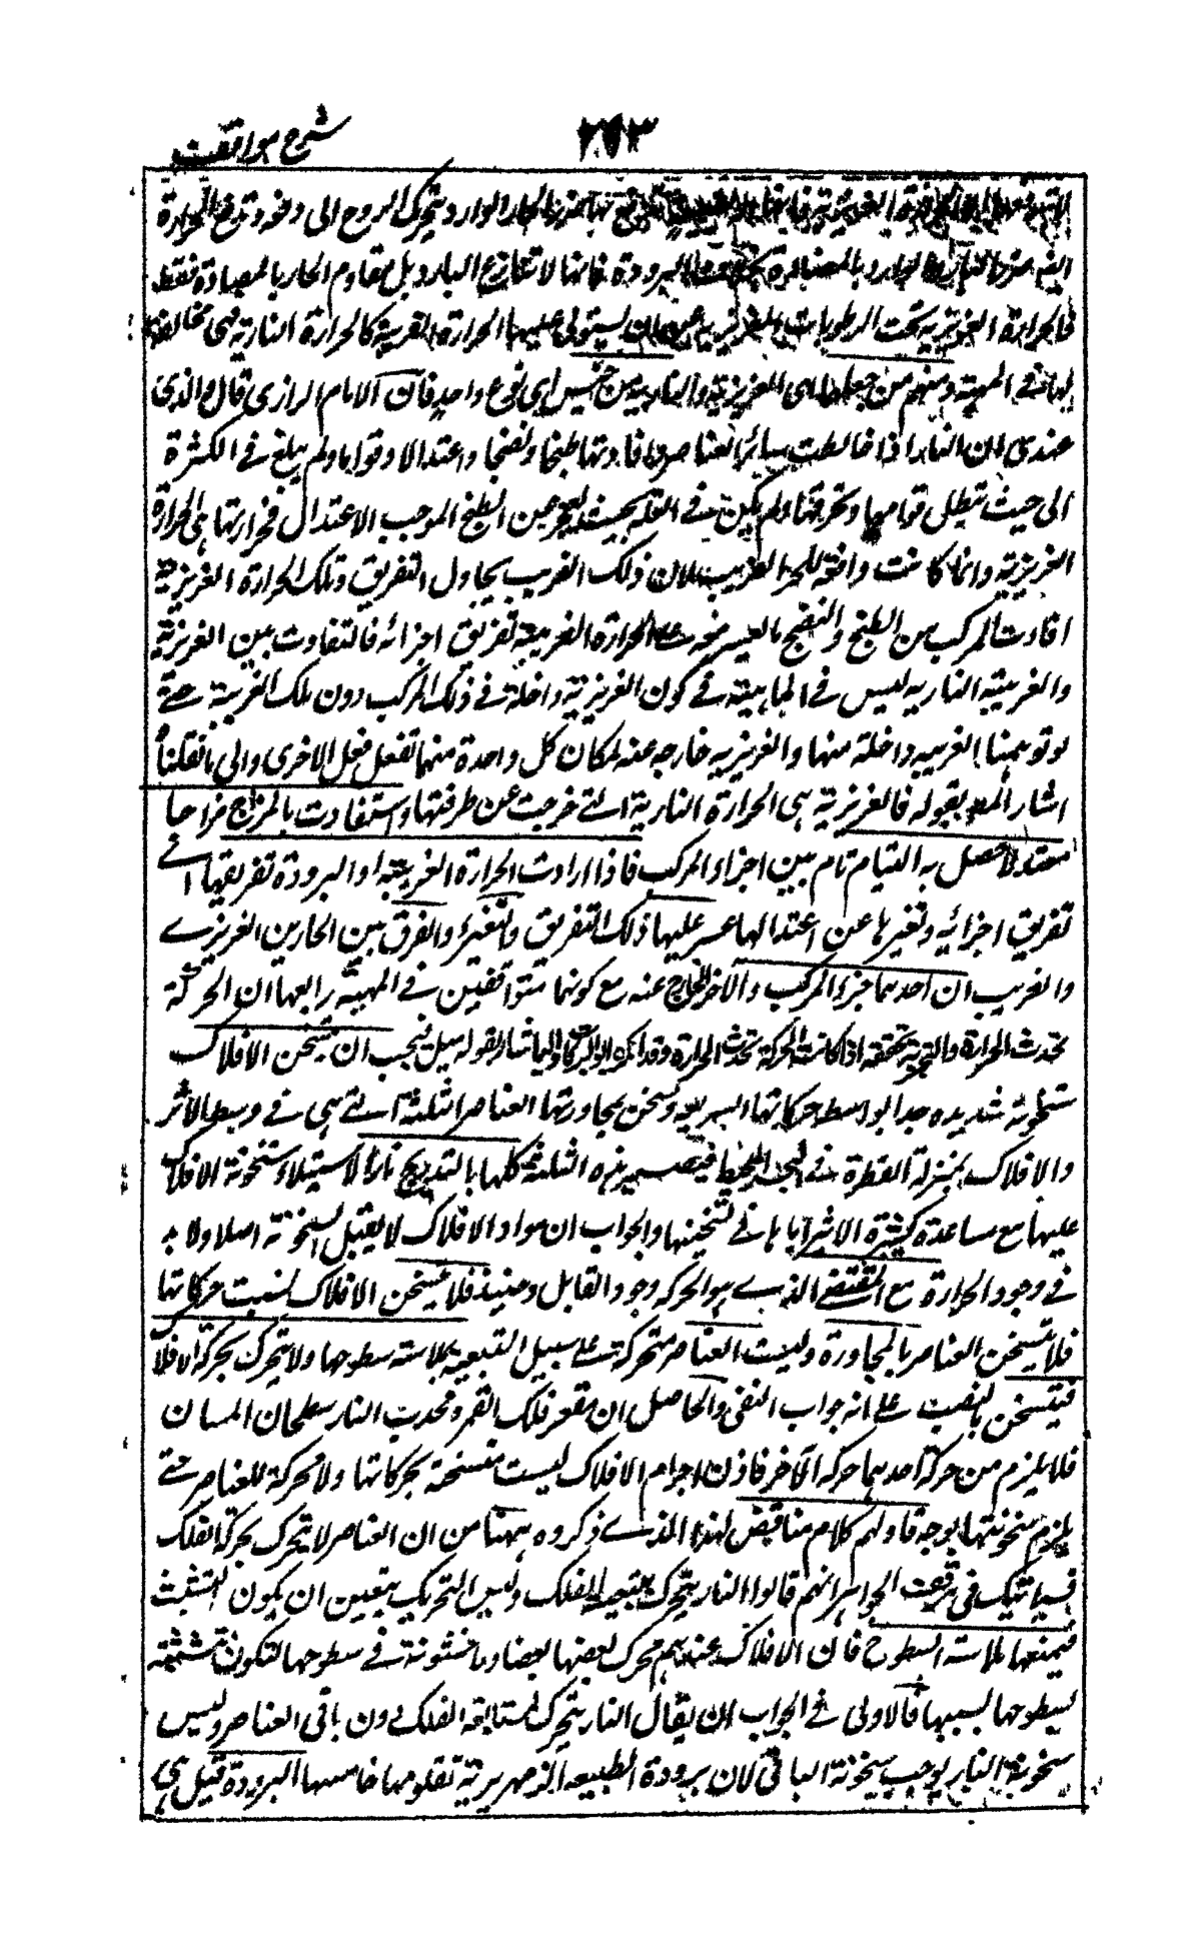 ٢٧٣
شرح مواقف
الحار الوارد بتحريك الروح الى دفعه وتدفع الحرارة
بالمضادة البرودة فانها لا تنازع البارد بل تقاوم الحار بالمضادة فقط
فالحرارة الغريزية تحت الرطوبات الغريزية عن ان يستولى عليها الحرارة الغريبة كالحرارة النارية فهى مخالفة
لها فى المهية ومنهم من جعلها اى الغريزية والنارية من جنس اى نوع واحد فان الامام الرازى قال والذى
عندى ان النار اذا خالطت سائر العناصر وافادتها طبخا ونضجا واعتدالا وقواما ولم يبلغ فى الكثرة
الى حيث تبطل قوامها وتحرقها ولم يكن فى القلة بحيث تعجز عن الطبخ الموجب الاعتدال فحرارتها هى الحرارة
الغريزية وانما كانت دافعة للحر الغريب لان ذلك الغريب يحاول التفريق وتلك الحرارة الغريزية
افادت المركب من الطبخ والنضج ما يعسر معه على الحرارة الغريبة تفريق اجزائه فالتفاوت بين الغريزية
والغريبة النارية ليس فى الماهية بل فى كون الغريزية داخلة فى ذلك المركب دون تلك الغريبة حتى
لو توهمنا الغريبة داخلة منها والغريزية خارجة عنه لكان كل واحدة منهما تفعل فعل الاخرى والى ما نقلناه
اشار المص بقوله فالغريزية هى الحرارة النارية التى خرجت عن طرفتها واستفادت بالمزاج مزاجا
معتدلا حصل به التيام تام بين اجزاء المركب فاذا ارادت الحرارة الغريبة او البرودة تفريقها اى
تفريق اجزائه وتغيرها عن اعتدالها عسر عليها ذلك التفريق والتغير والفرق بين الحارين الغريزى
والغريب ان احدهما جزء المركب والآخر خارج عنه مع كونهما متوافقين فى المهية رابعها ان الحركة
تحدث الحرارة والتجربة تحققه اذا كانت الحركة تحدث الحرارة وقد انكره ابو البركات واليه اشار بقوله قيل فيجب ان يتسخن الافلاك
سخونة شديدة جدا بواسطة حركاتها السريعة ويسخن بمجاورتها العناصر الثلثة التى هى فى وسط الاثير
والافلاك بمنزلة القطرة فى البحر المحيط فيصير هذه الثلثة كلها بالتدريج نارا لاستيلاء سخونة الافلاك
عليها مع مساعدة كثيرة الاشر اياها فى تسخينها والجواب ان مواد الافلاك لا يقبل السخونة اصلا ولا بد
فى وجود الحرارة مع المقتضى الذى هو الحركة وجود القابل وحينئذ فلا يتسخن الافلاك بسبب حركاتها
فلا يتسخن العناصر بالمجاورة وليست العناصر متحركة على سبيل التبعية لملاسة سطوحها ولا يتحرك بحركة الافلاك
فيتسخن بالنصب على انه جواب النفى والحاصل ان مقعر فلك القمر ومحدب النار سطحان املسان
فلا يلزم من حركة احدهما حركة الآخر فاذن اجرام الافلاك ليست متسخنة بحركاتها ولا محركة للعناصر حتى
يلزم سخونتها بوجه ما ولهم كلام مناقض لهذا الذى ذكروه ههنا من ان العناصر لا يتحرك بحركة الفلك
فسياتيك فى الجواهر انهم قالوا النار يتحرك بتبعية الفلك وليس التحريك بتعين ان يكون التشبث
فيمنعها ملاسة السطوح فان الافلاك عندهم يحرك بعضها بعضا ولا خشونة فى سطوحها لتكون متشبثة
بسطوحها بسببها فالاولى فى الجواب ان يقال النار يتحرك لمتابعة الفلك دون باقى العناصر وليس
سخونة النار يوجب سخونة الباقى لان برودة الطبيعة الزمهريرية تقاومها خامسها البرودة قيل هى